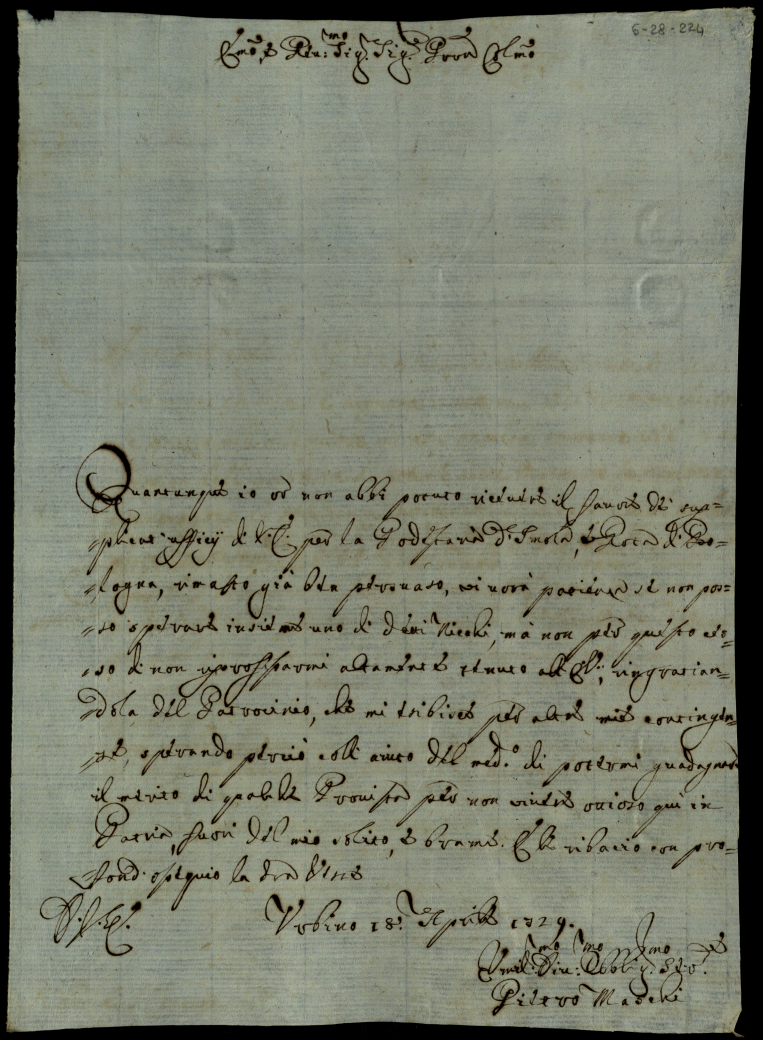 6-28-224
Emo, e Reu:mo Sig: Sig:e Prone Colmo
Quantunque io or non abbi potuto riceuere il fauore de sup=
=plicati ufficij di V.E. per la Podestaria d'Imola, e Rocca di Bo=
=logna, rimasto già ben persuaso, vi uorà pacienza se non pos=
=so operare insieme uno di detti Nicchi, mà non per questo ces=
=so di non professarmi altamente tenuto all'E.V., ringrazian=
=dola del Patrocinio, che mi esibisce per altre mie contingen=
=ze, sperando perciò coll aiuto del med.o di potermi guadagnare
il merito di qualche Prouista per non uiuere ozioso qui in
Patria, fuori del mio solito, e brame. E le ribacio con pro=
=fond'ossequio la sacra Veste
D. V. E.
Vrbino 18: Aprile 1729.
Vmil:mo Diu:mo Obblig:mo Se.re
Pietro Madchi